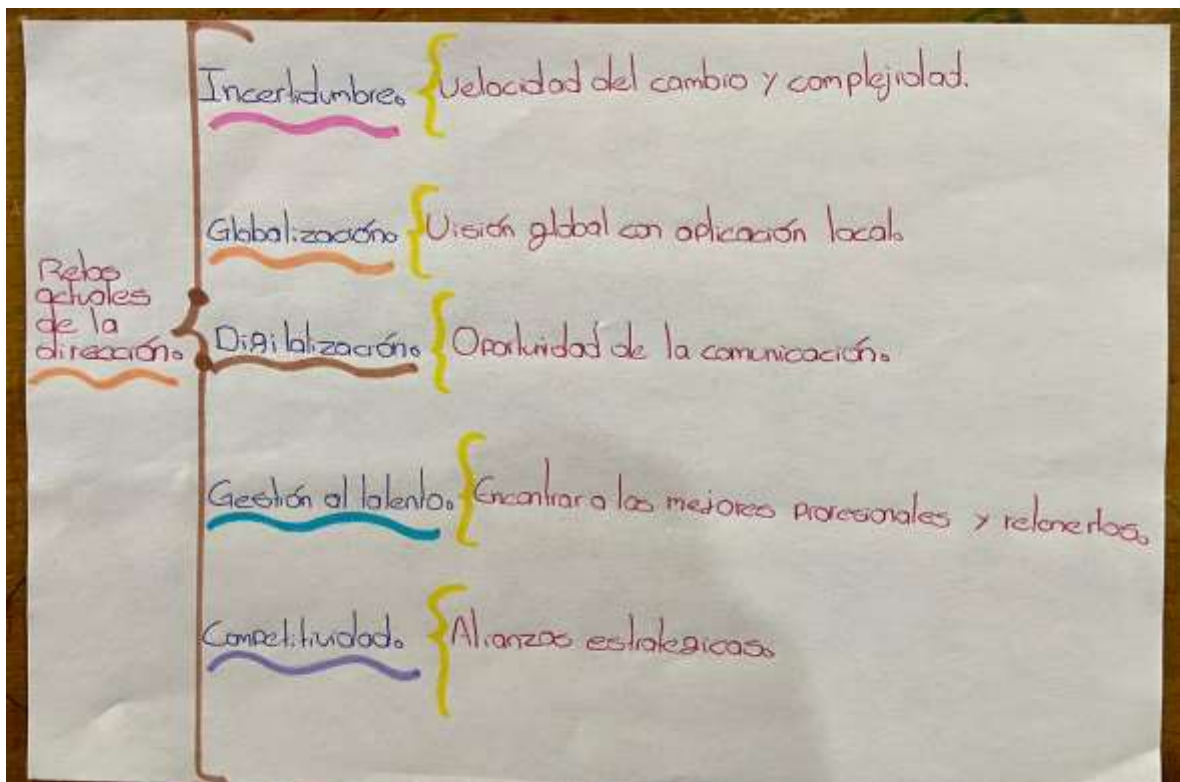 Retos
actuales
de la
dirección.
Incertidumbre.
Velocidad del cambio y complejidad.
Globalización.
Visión global con aplicación local.
Digitalización.
Oportunidad de la comunicación.
Gestión al talento.
Encontrar a los mejores profesionales y retenerlos.
Competitividad.
Alianzas estrategicas.